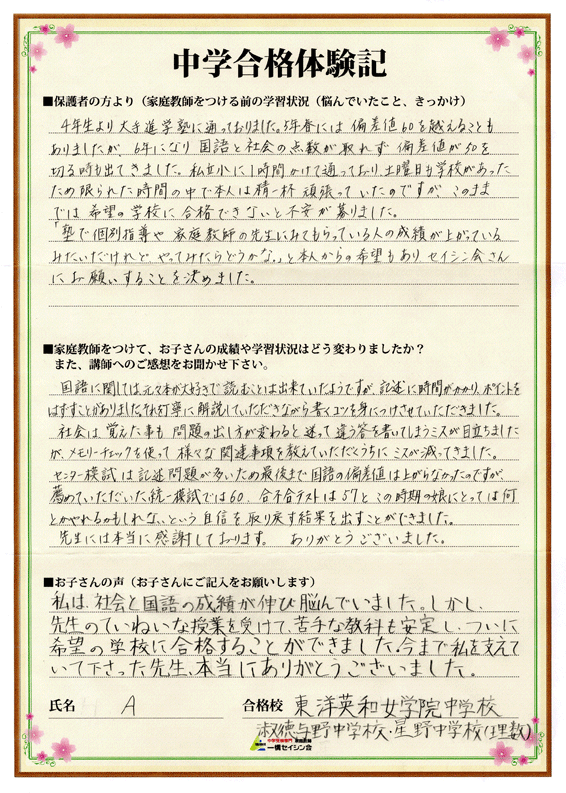 中学合格体験記
■保護者の方より（家庭教師をつける前の学習状況（悩んでいたこと、きっかけ）
4年生より大手進学塾に通っておりました。5年春には偏差値60を越えることも
ありましたが、6年になり国語と社会の点数が取れず偏差値が50を
切る時も出てきました。私立小に1時間かけて通っており、土曜日も学校があった
ため限られた時間の中で本人は精一杯頑張っていたのですが、このまま
では希望の学校に合格できないと不安が募りました。
「塾で個別指導や家庭教師の先生にみてもらっている人の成績が上がっている
みたいだけれど、やってみたらどうかな。」と本人からの希望もあり、セイシン会さん
にお願いすることを決めました。
■家庭教師をつけて、お子さんの成績や学習状況はどう変わりましたか？
また、講師へのご感想をお聞かせ下さい。
国語に関しては元々本が大好きで読むことは出来ていたようですが、記述に時間がかかり、ポイントを
はずすことがありましたが、丁寧に解説していただきながら書くコツを身につけさせていただきました。
社会は覚えた事も問題の出し方が変わると迷って違う答を書いてしまうミスが目立ちました
が、メモリーチェックを使って様々な関連事項を教えていただくうちにミスが減ってきました。
センター模試は記述問題が多いため最後まで国語の偏差値は上がらなかったのですが、
薦めていただいた統一模試では60、合不合テストは57とこの時期の娘にとっては何
とかやれるかもしれないという自信を取り戻す結果を出すことができました。
先生には本当に感謝しております。 ありがとうございました。
■お子さんの声（お子さんにご記入をお願いします）
私は、社会と国語の成績が伸び悩んでいました。しかし、
先生のていねいな授業を受けて、苦手な教科も安定し、ついに
希望の学校に合格することができました。今まで私を支えて
いて下さった先生、本当にありがとうございました。
氏名 A 合格校 東洋英和女学院中学校
淑徳与野中学校・星野中学校(理数)
中学受験専門 家庭教師
一橋セイシン会